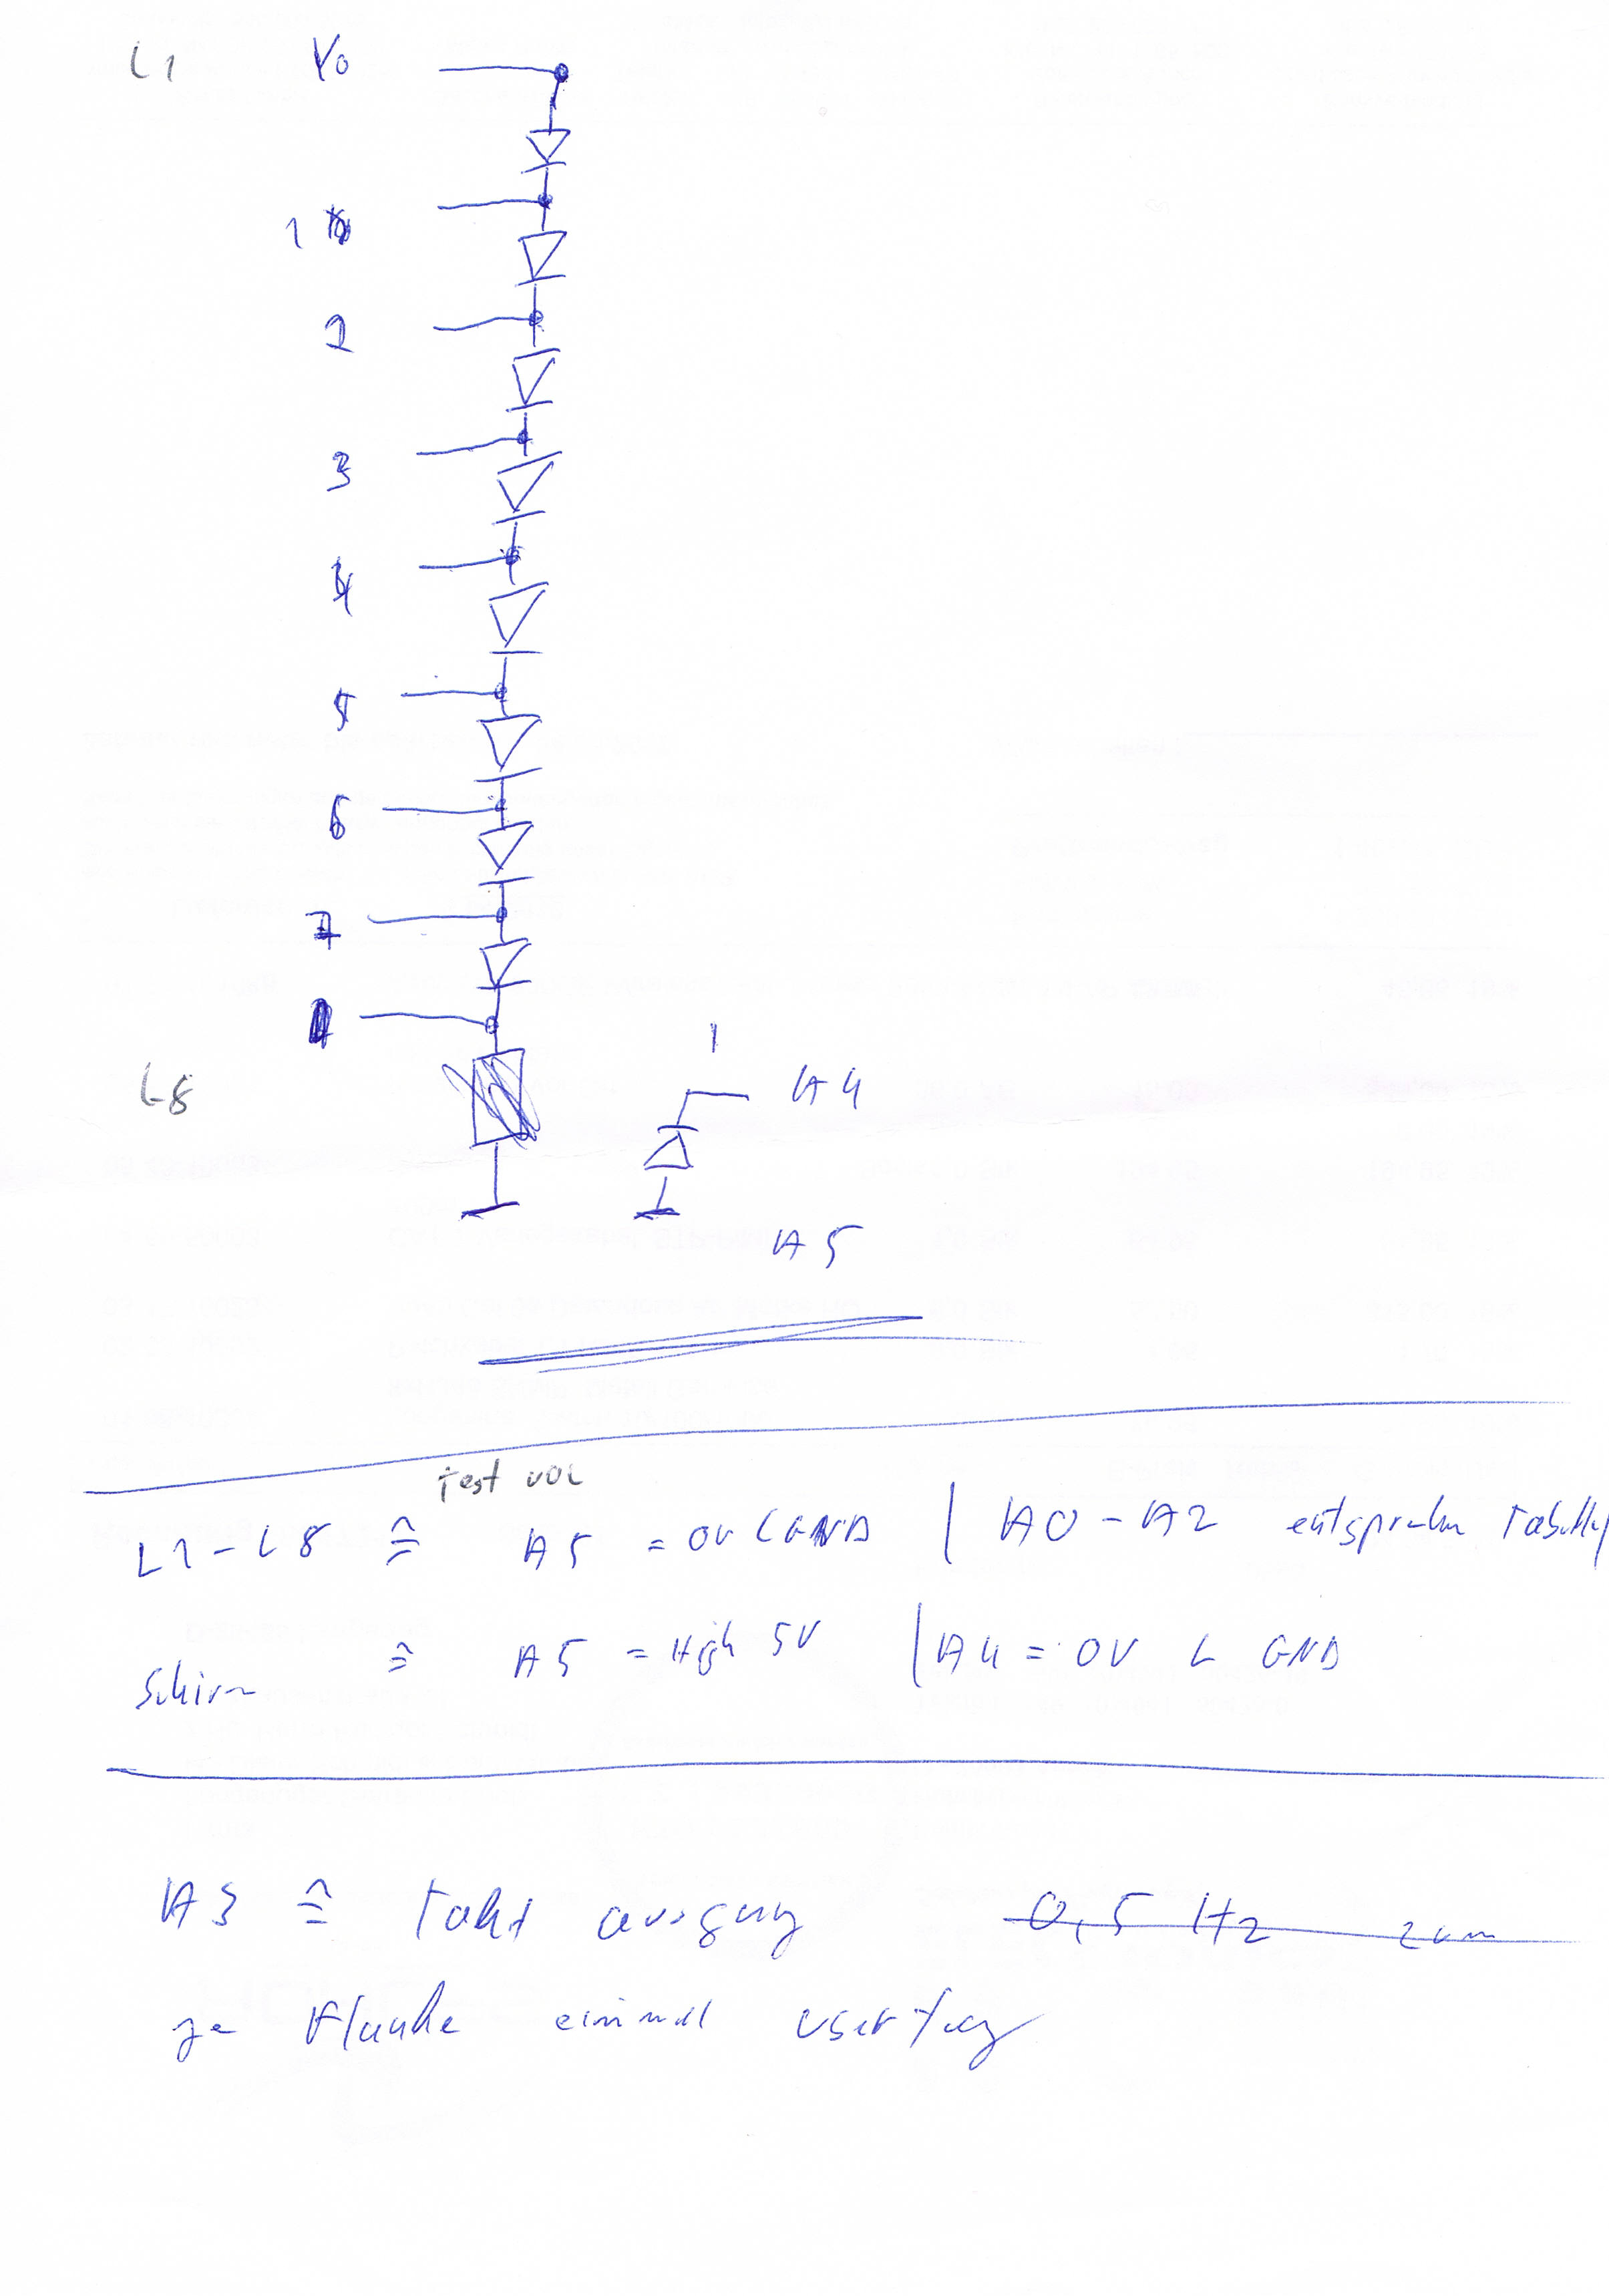 L1 Y0
1
2
3
4
5
6
7
L8
1
A4
A5
Test von
L1 - L8 ≙ A5 = 0V L GND | A0 - A2 entsprechen Tabelle
Schirm ≙ A5 = High 5V | A4 = 0V L GND
A3 ≙ Takt ausgang 0,5 Hz zum
je Flanke einmal